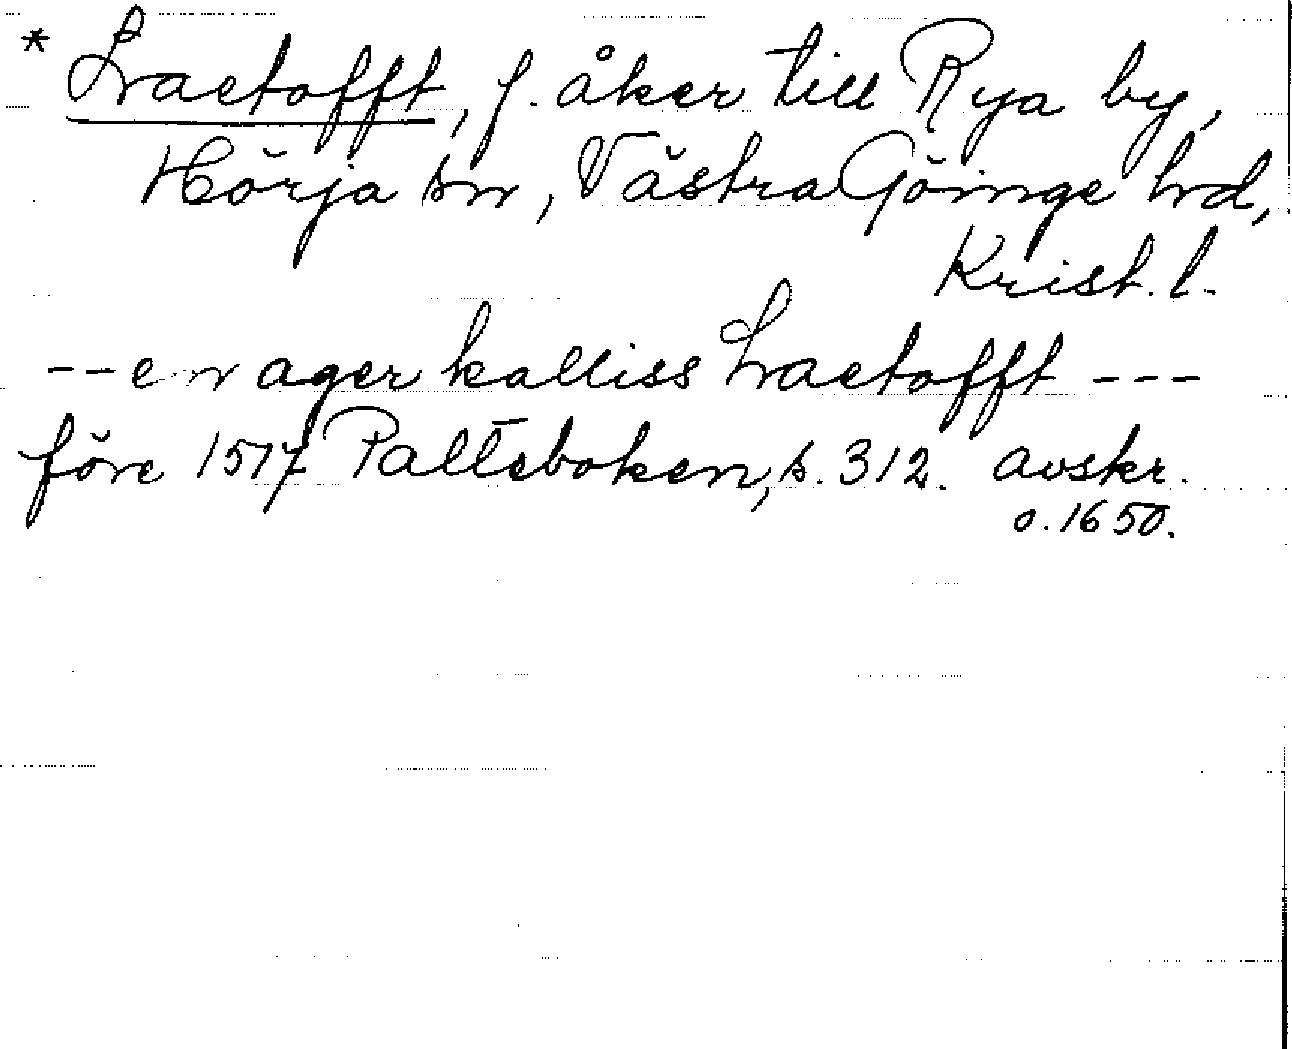 * Lvaetofft, f. åker till Rya by,
Hörja sn, Västra Göinge hd,
Krist. l.
--en ager kalliss hvaetofft ---
före 1517 Palteboken, s. 312. avskr.
o. 1650.